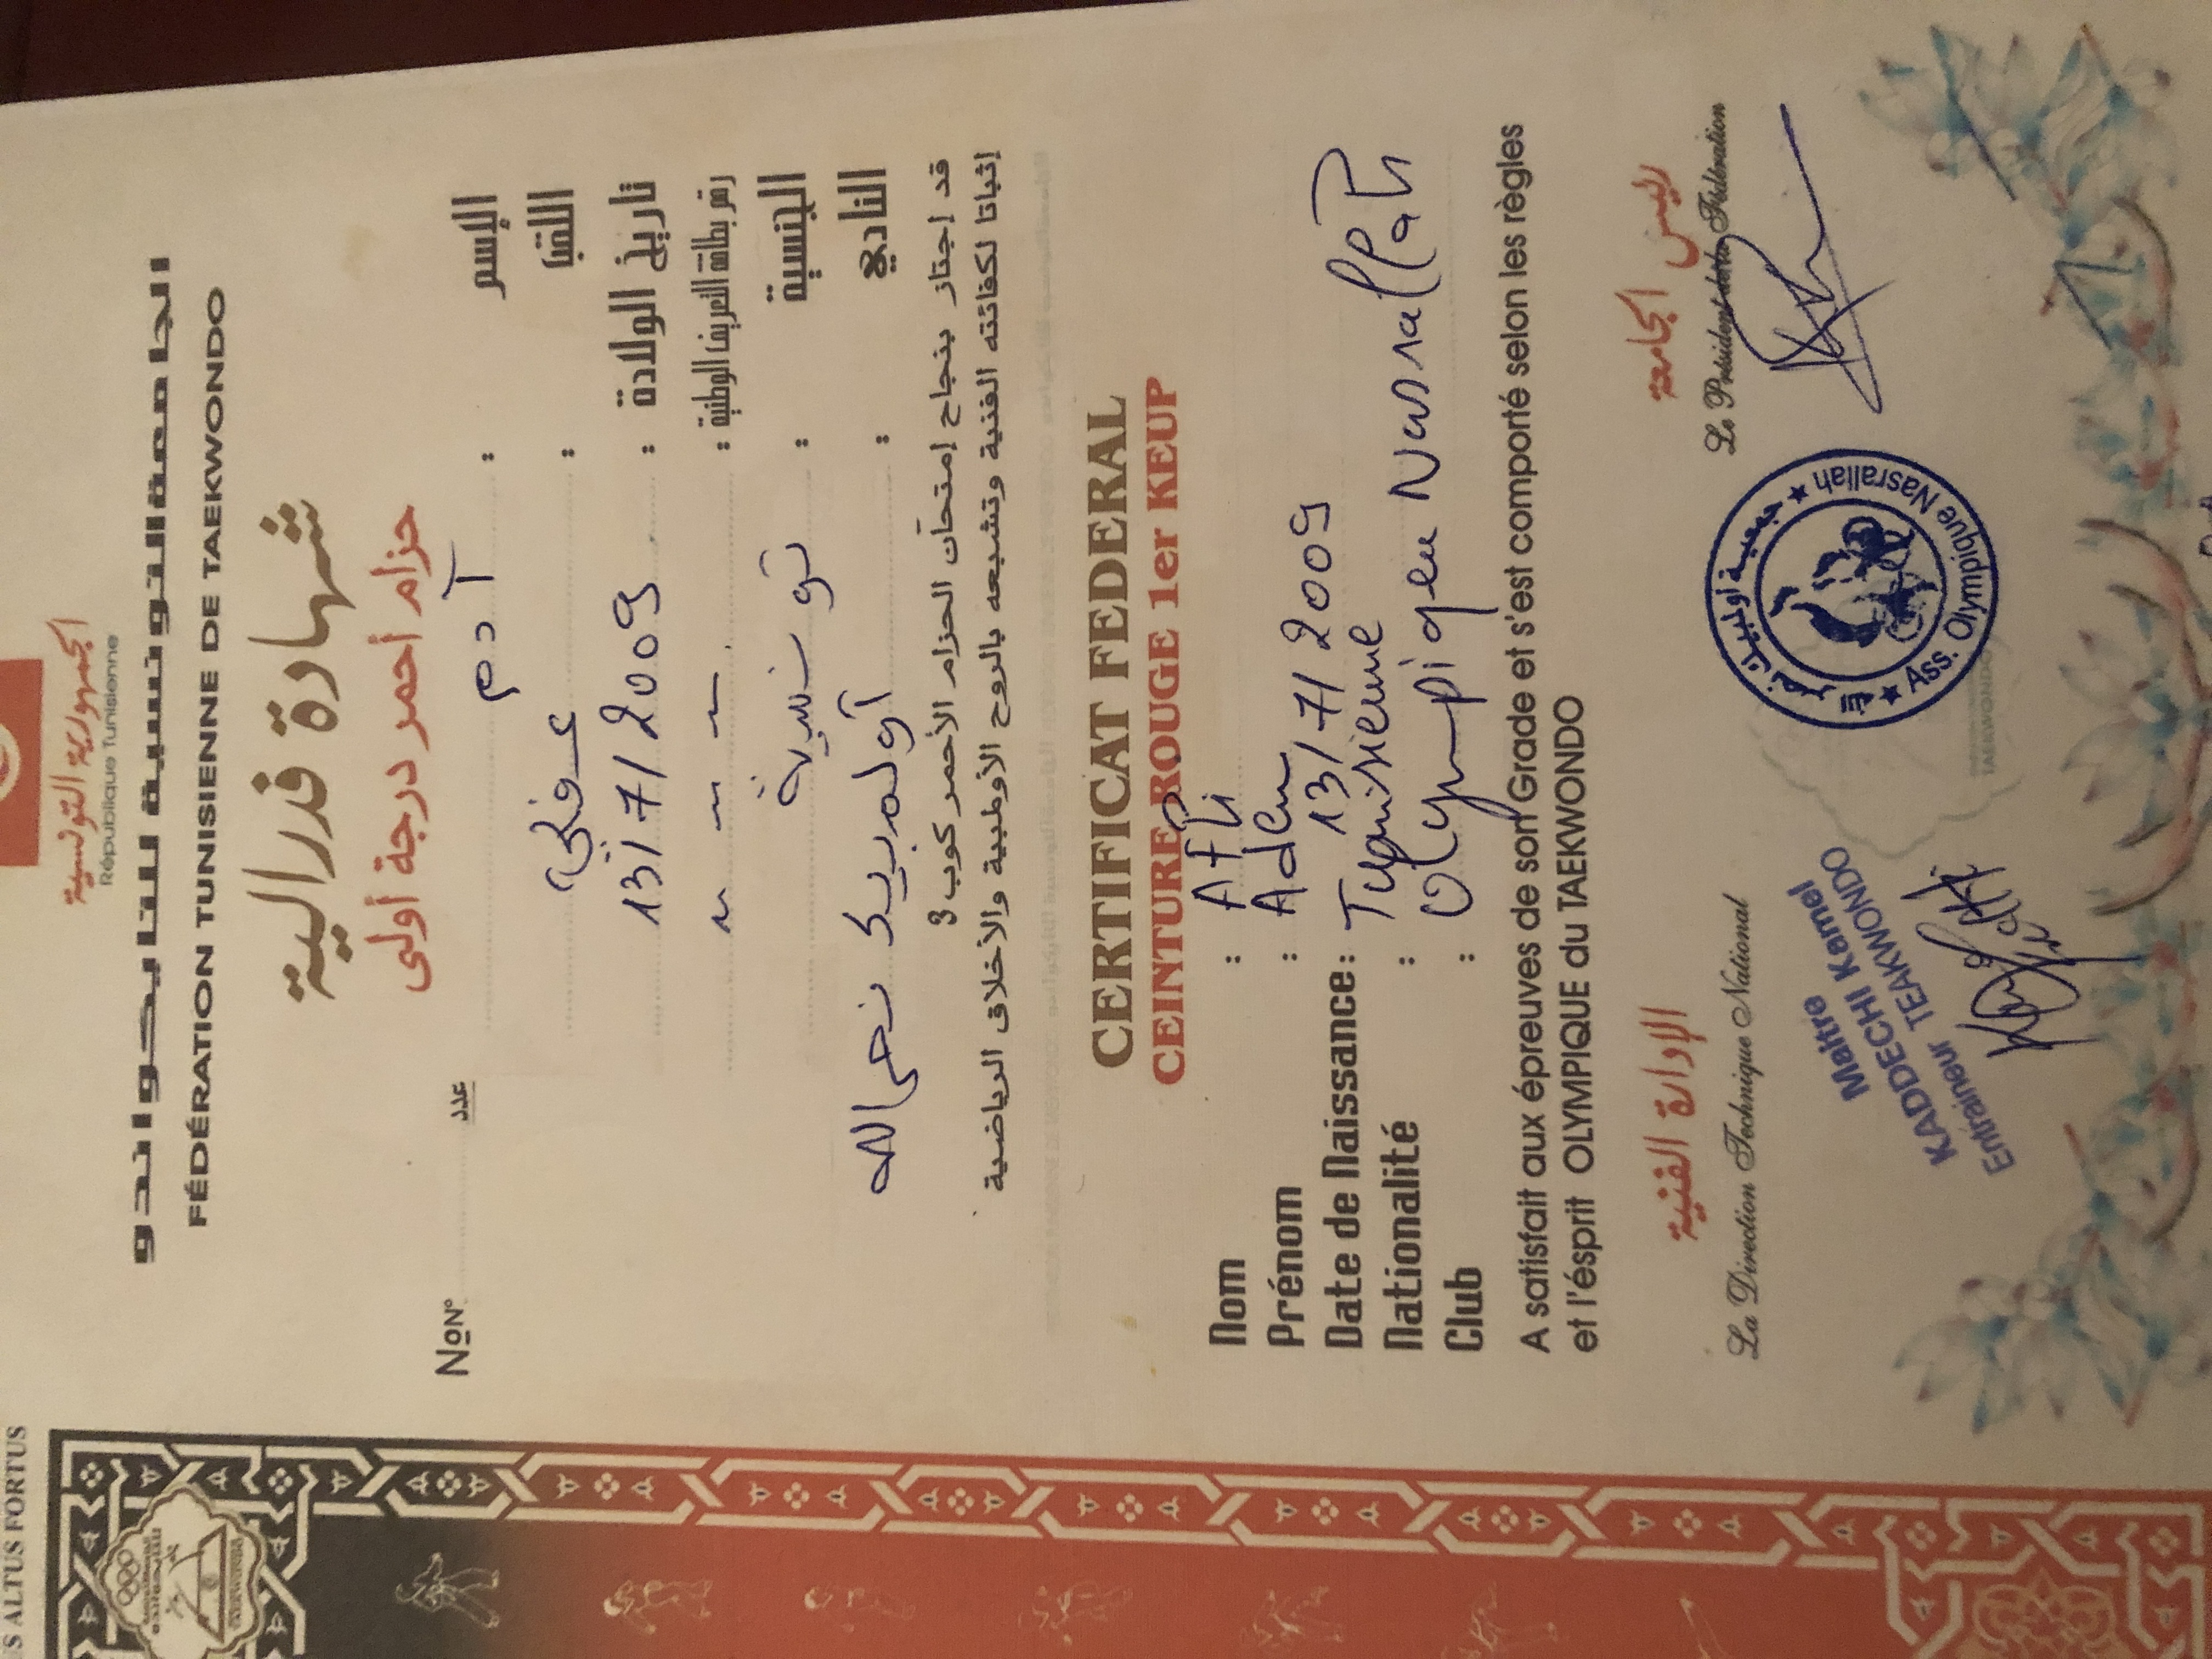 الجمهورية التونسية
République Tunisienne
الجامعة التونسية للتايكواندو
FÉDÉRATION TUNISIENNE DE TAEKWONDO
شهادة فدرالية
حزام أحمر درجة أولى
NoN° عدد
الإسم : آدم
اللقب : عفلي
تاريخ الولادة : 13/7/2009
رقم بطاقة التعريف الوطنية :
الجنسية : تونسية
النادي : أولمبيك نصرالله
قد إجتاز بنجاح إمتحان الحزام الأحمر كوب 3
إثباتا لكفائته الفنية وتشبعه بالروح الأولمبية والأخلاق الرياضية
CERTIFICAT FEDERAL
CEINTURE ROUGE 1er KEUP
Nom : Afli
Prénom : Adem
Date de Naissance : 13/7/2009
Nationalité : Tunisienne
Club : Olympique Nasrallah
A satisfait aux épreuves de son Grade et s'est comporté selon les règles
et l'ésprit OLYMPIQUE du TAEKWONDO
الإدارة الفنية
La Direction Technique National
رئيس الجامعة
Le Président de la Fédération
Maitre
KADDECHI Kamel
Entraineur TEAKWONDO
جمعية أولمبيك نصر الله
Ass. Olympique Nasrallah
TAEKWONDO
ALTUS FORTUS